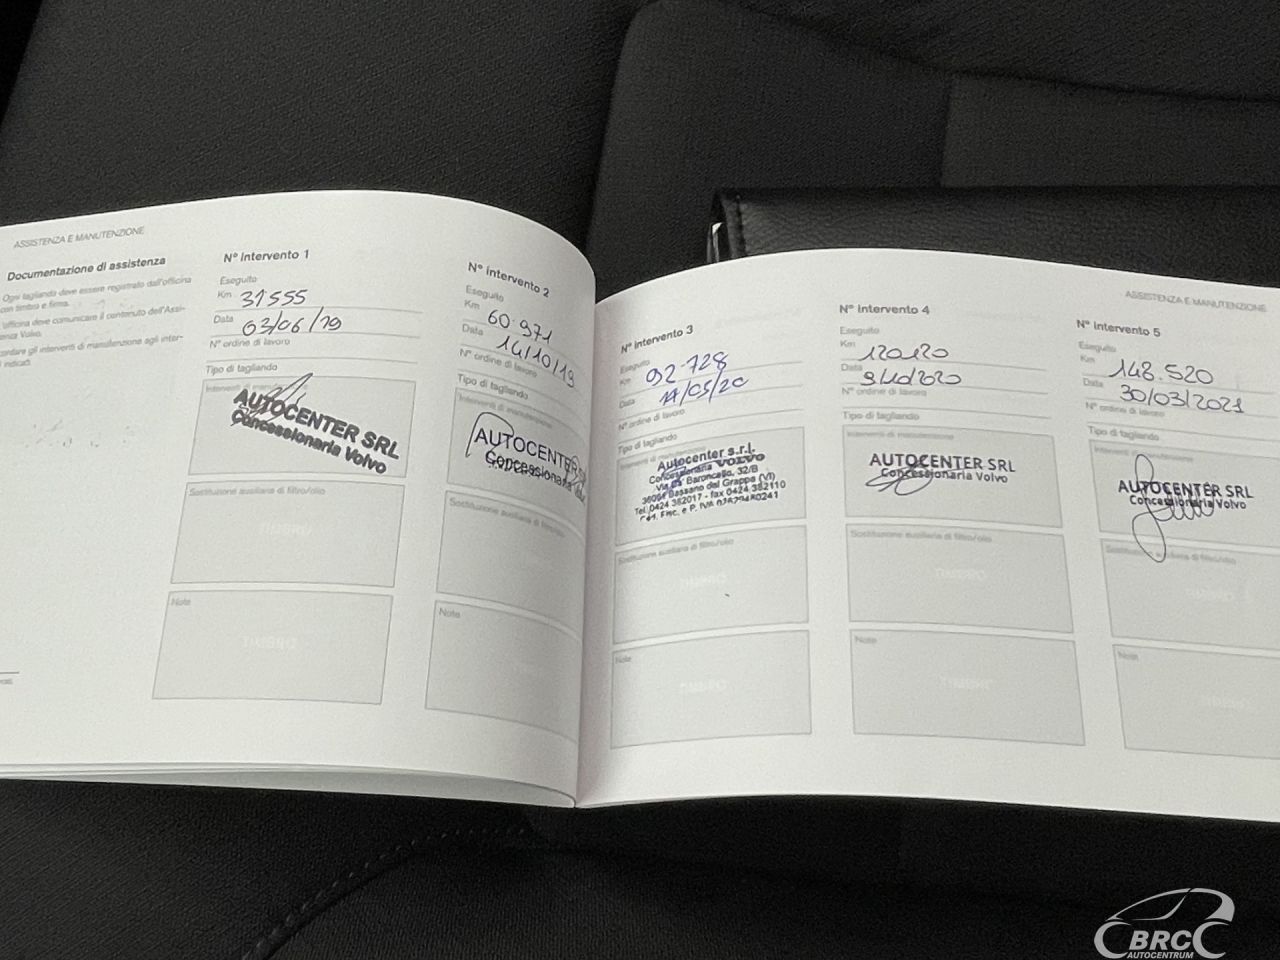 ASSISTENZA E MANUTENZIONE
Documentazione di assistenza
Ogni tagliando deve essere registrato dall'officina
con timbro e firma.
officina deve comunicare il contenuto dell'Assi-
Volvo.
gli interventi di manutenzione agli inter-
indicati.
N° intervento 1
Eseguito
Km 31555
Data 03/06/19
N° ordine di lavoro
Tipo di tagliando
AUTOCENTER SRL
Concessionaria Volvo
Sostituzione ausiliaria di filtro/olio
Note
N° intervento 2
Eseguito
Km 60.971
Data 14/10/19
N° ordine di lavoro
Tipo di tagliando
Interventi di manutenzione
AUTOCENTER
Concessionaria
Sostituzione ausiliaria di filtro/olio
Note
N° intervento 3
Eseguito
Km 92.728
Data
N° ordine di lavoro
Tipo di tagliando
Autocenter s.r.l.
Concessionaria VOLVO
Via Ca' Baroncello, 32/B
Bassano del Grappa (VI)
Tel. 0424 382017 - fax 0424 382110
Sostituzione ausiliaria di filtro/olio
Note
ASSISTENZA E MANUTENZIONE
N° intervento 4
Eseguito
Km 120120
Data 9/10/2020
N° ordine di lavoro
Tipo di tagliando
Interventi di manutenzione
AUTOCENTER SRL
Concessionaria Volvo
Sostituzione ausiliaria di filtro/olio
Note
N° intervento 5
Eseguito
Km 148.520
Data 30/03/2021
N° ordine di lavoro
Tipo di tagliando
Interventi di manutenzione
AUTOCENTER SRL
Concessionaria Volvo
Sostituzione ausiliaria di filtro/olio
Note
BRC
AUTOCENTRUM